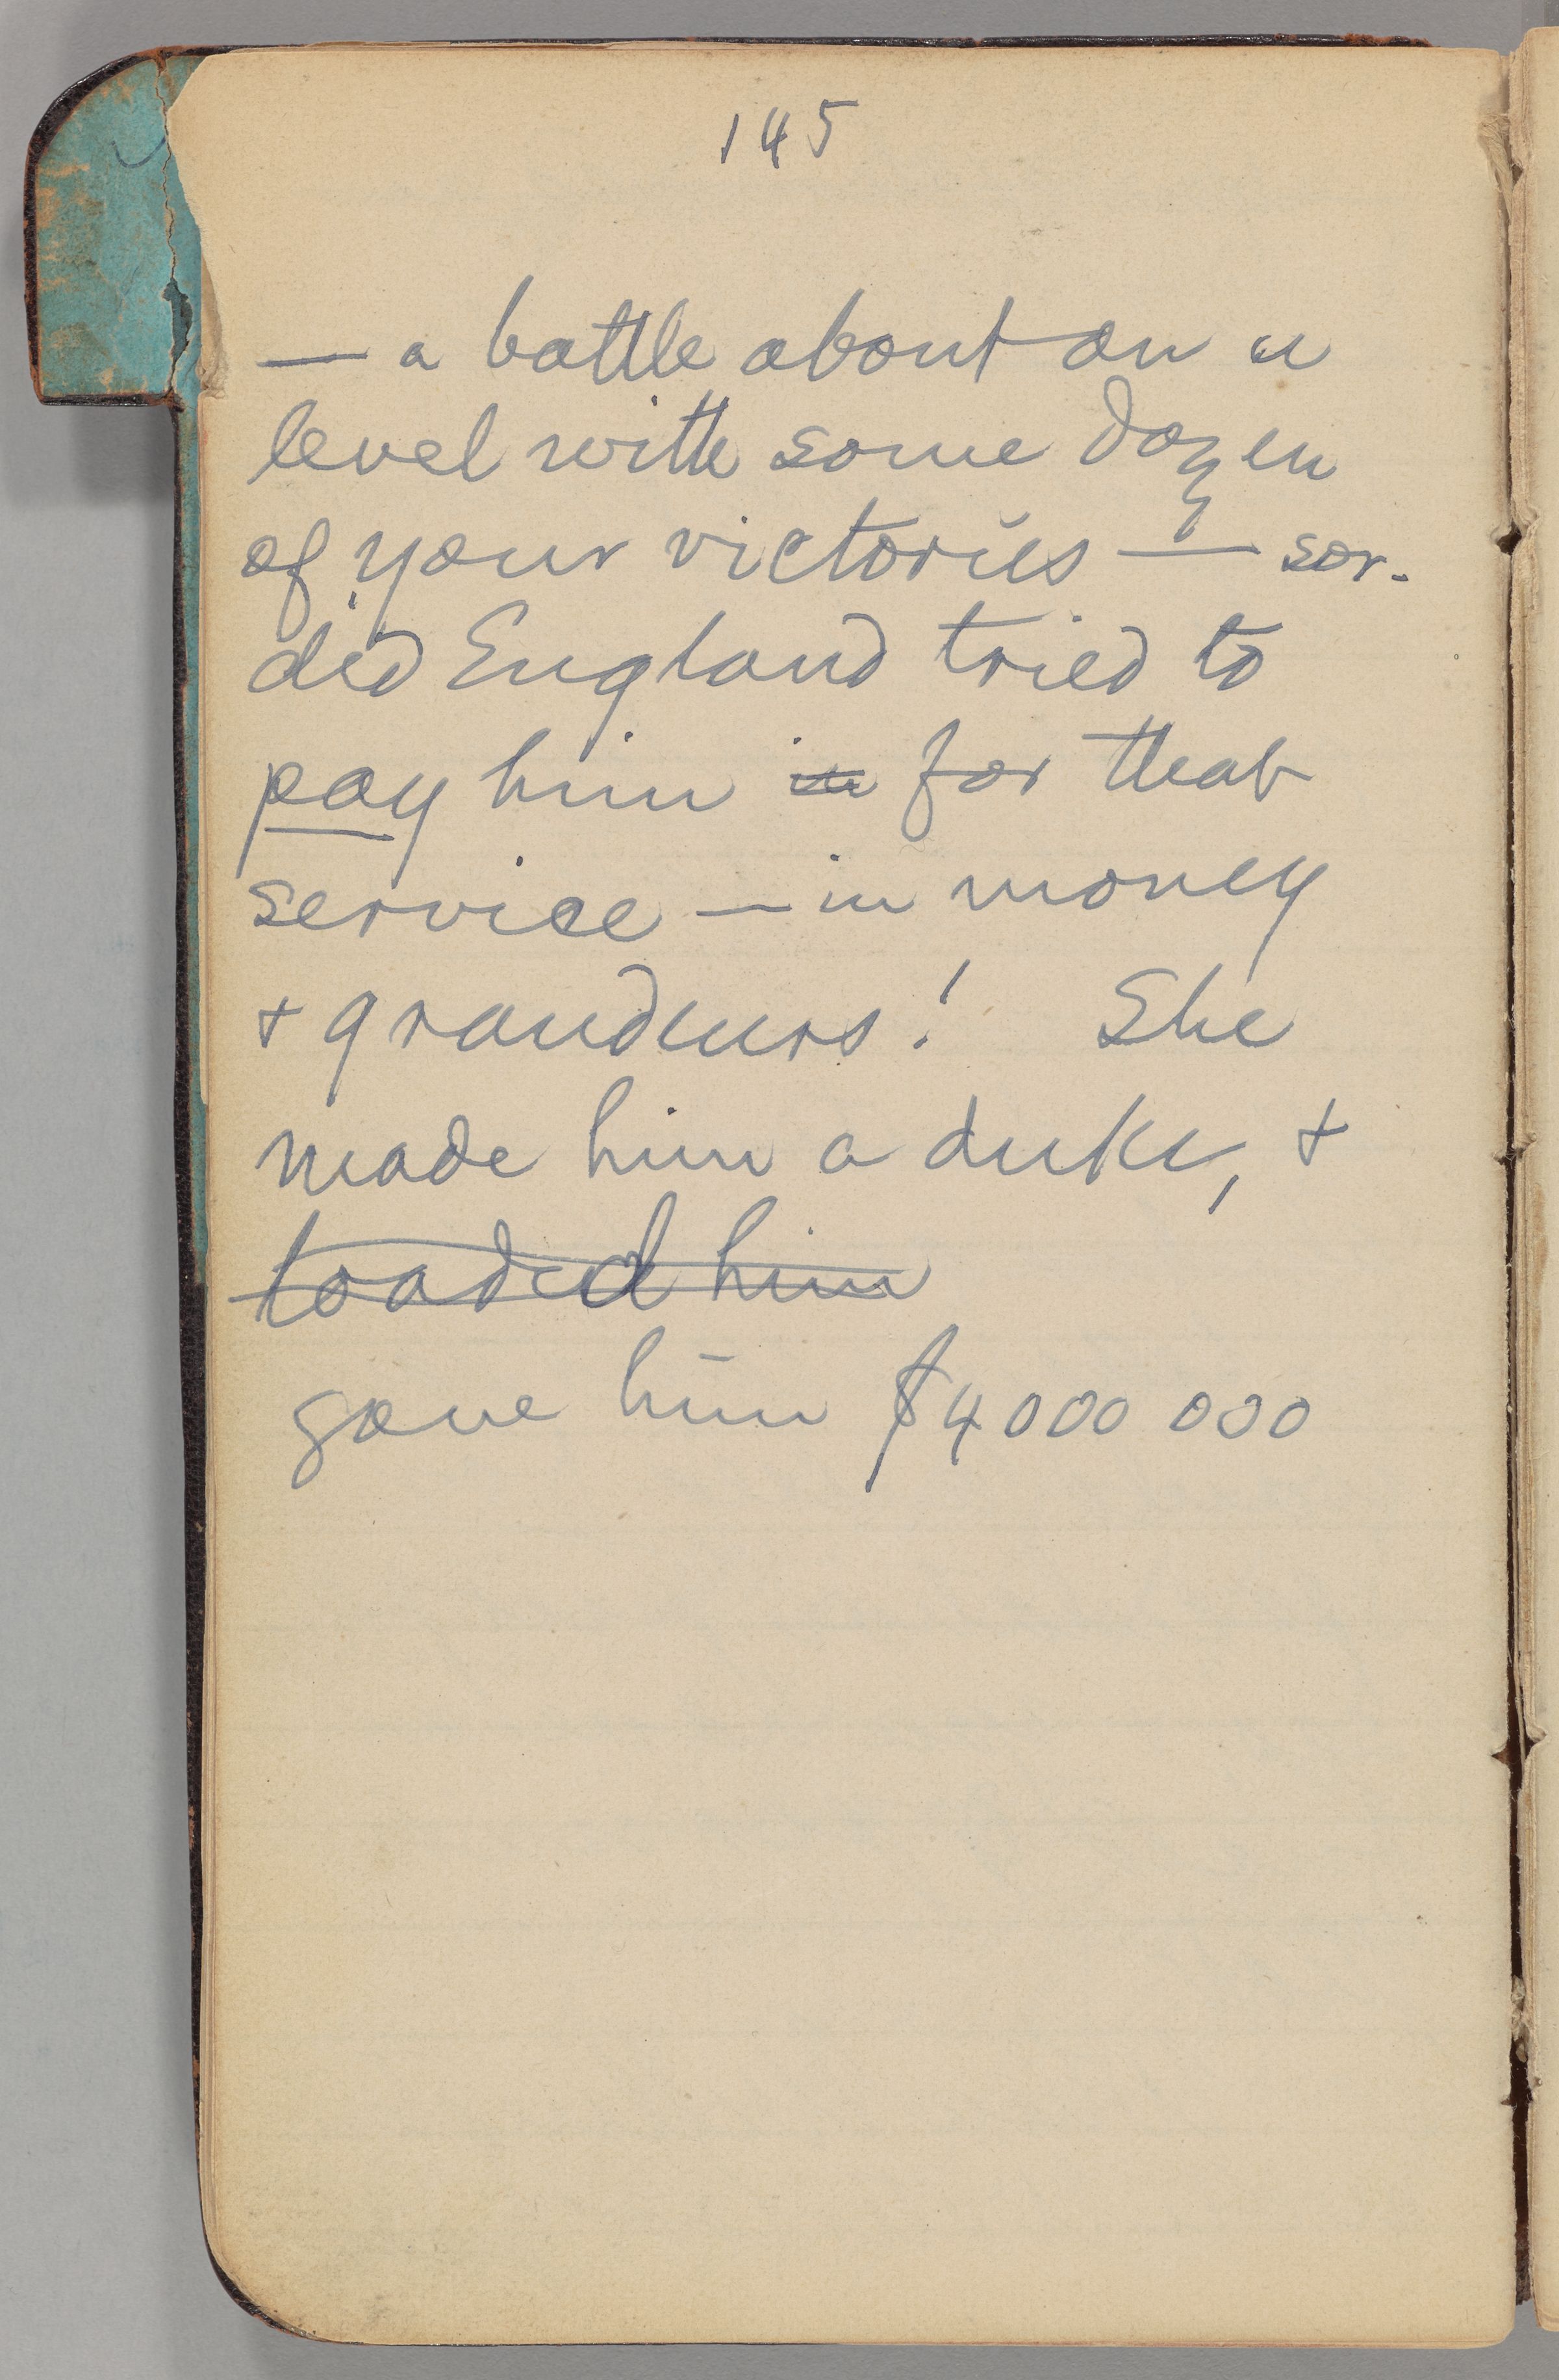 145
— a battle about on a
level with some dozen
of your victories — sor-
did England tried to
pay him in for that
service — in money
+ grandeurs! She
made him a duke, +
loaded him
gave him $4000 000